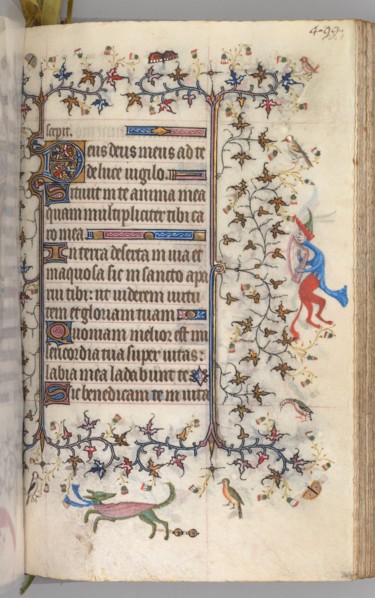 scepit.
Deus deus meus ad te
de luce vigilo.
Sitivit in te anima mea
quam multipliciter tibi ca
ro mea.
In terra deserta in via et
in aquosa sic in sancto apa
rui tibi: ut viderem virtu
tem et gloriam tuam
Quoniam melior est mi
sericordia tua super vitas:
labia mea laudabunt te
Sic benedicam te in vita